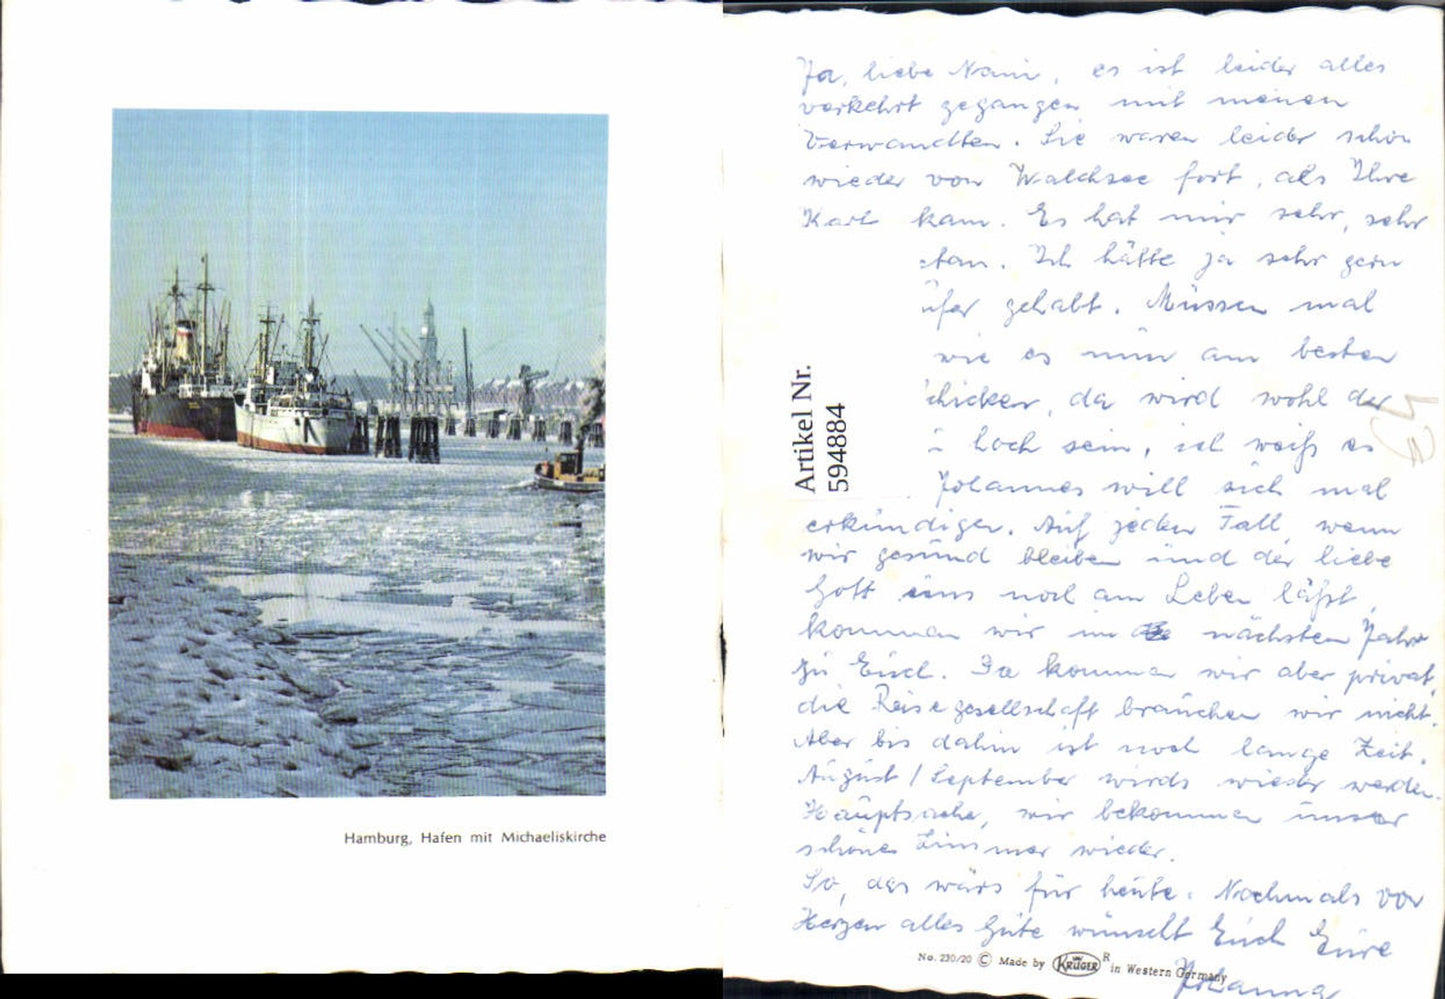 Hamburg, Hafen mit Michaeliskirche
Ja, liebe Nani, es ist leider alles
verkehrt gegangen mit meinen
Verwandten. Sie waren leider schon
wieder von Walchsee fort, als Ihre
Karl kam. Es hat mir sehr, sehr
tan. Ich hätte ja sehr gern
gehabt. Müssen mal
wie es nun am besten
hicken, da wird wohl der
hoch sein, ich weiß es
Johannes will sich mal
erkundigen. Auf jeden Fall, wenn
wir gesund bleiben und der liebe
Gott uns noch am Leben läßt,
kommen wir im nächsten Jahr
zu Euch. Da kommen wir aber privat,
die Reisegesellschaft brauchen wir nicht.
Aber bis dahin ist noch lange Zeit.
August / September wirds wieder werden.
Hauptsache, wir bekommen unser
schönes Zimmer wieder.
So, das wärs für heute. Nochmals von
Herzen alles Gute wünscht Euch Eure
Johanna
Artikel Nr.
594884
No. 230/20 © Made by KRÜGER R in Western Germany